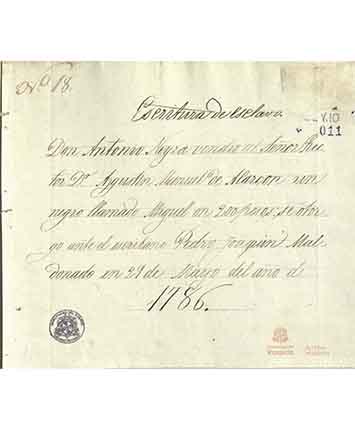 Nº 18.
Escritura de esclavo.
011
Don Antonio Negra vendio al Señor Rec
tor Dn. Agustin Manuel de Alarcon un
negro llamado Miguel en 200 pesos, se otor
go ante el escribano Pedro Joaquin Mal
donado en 21 de Marzo del año d
1786.